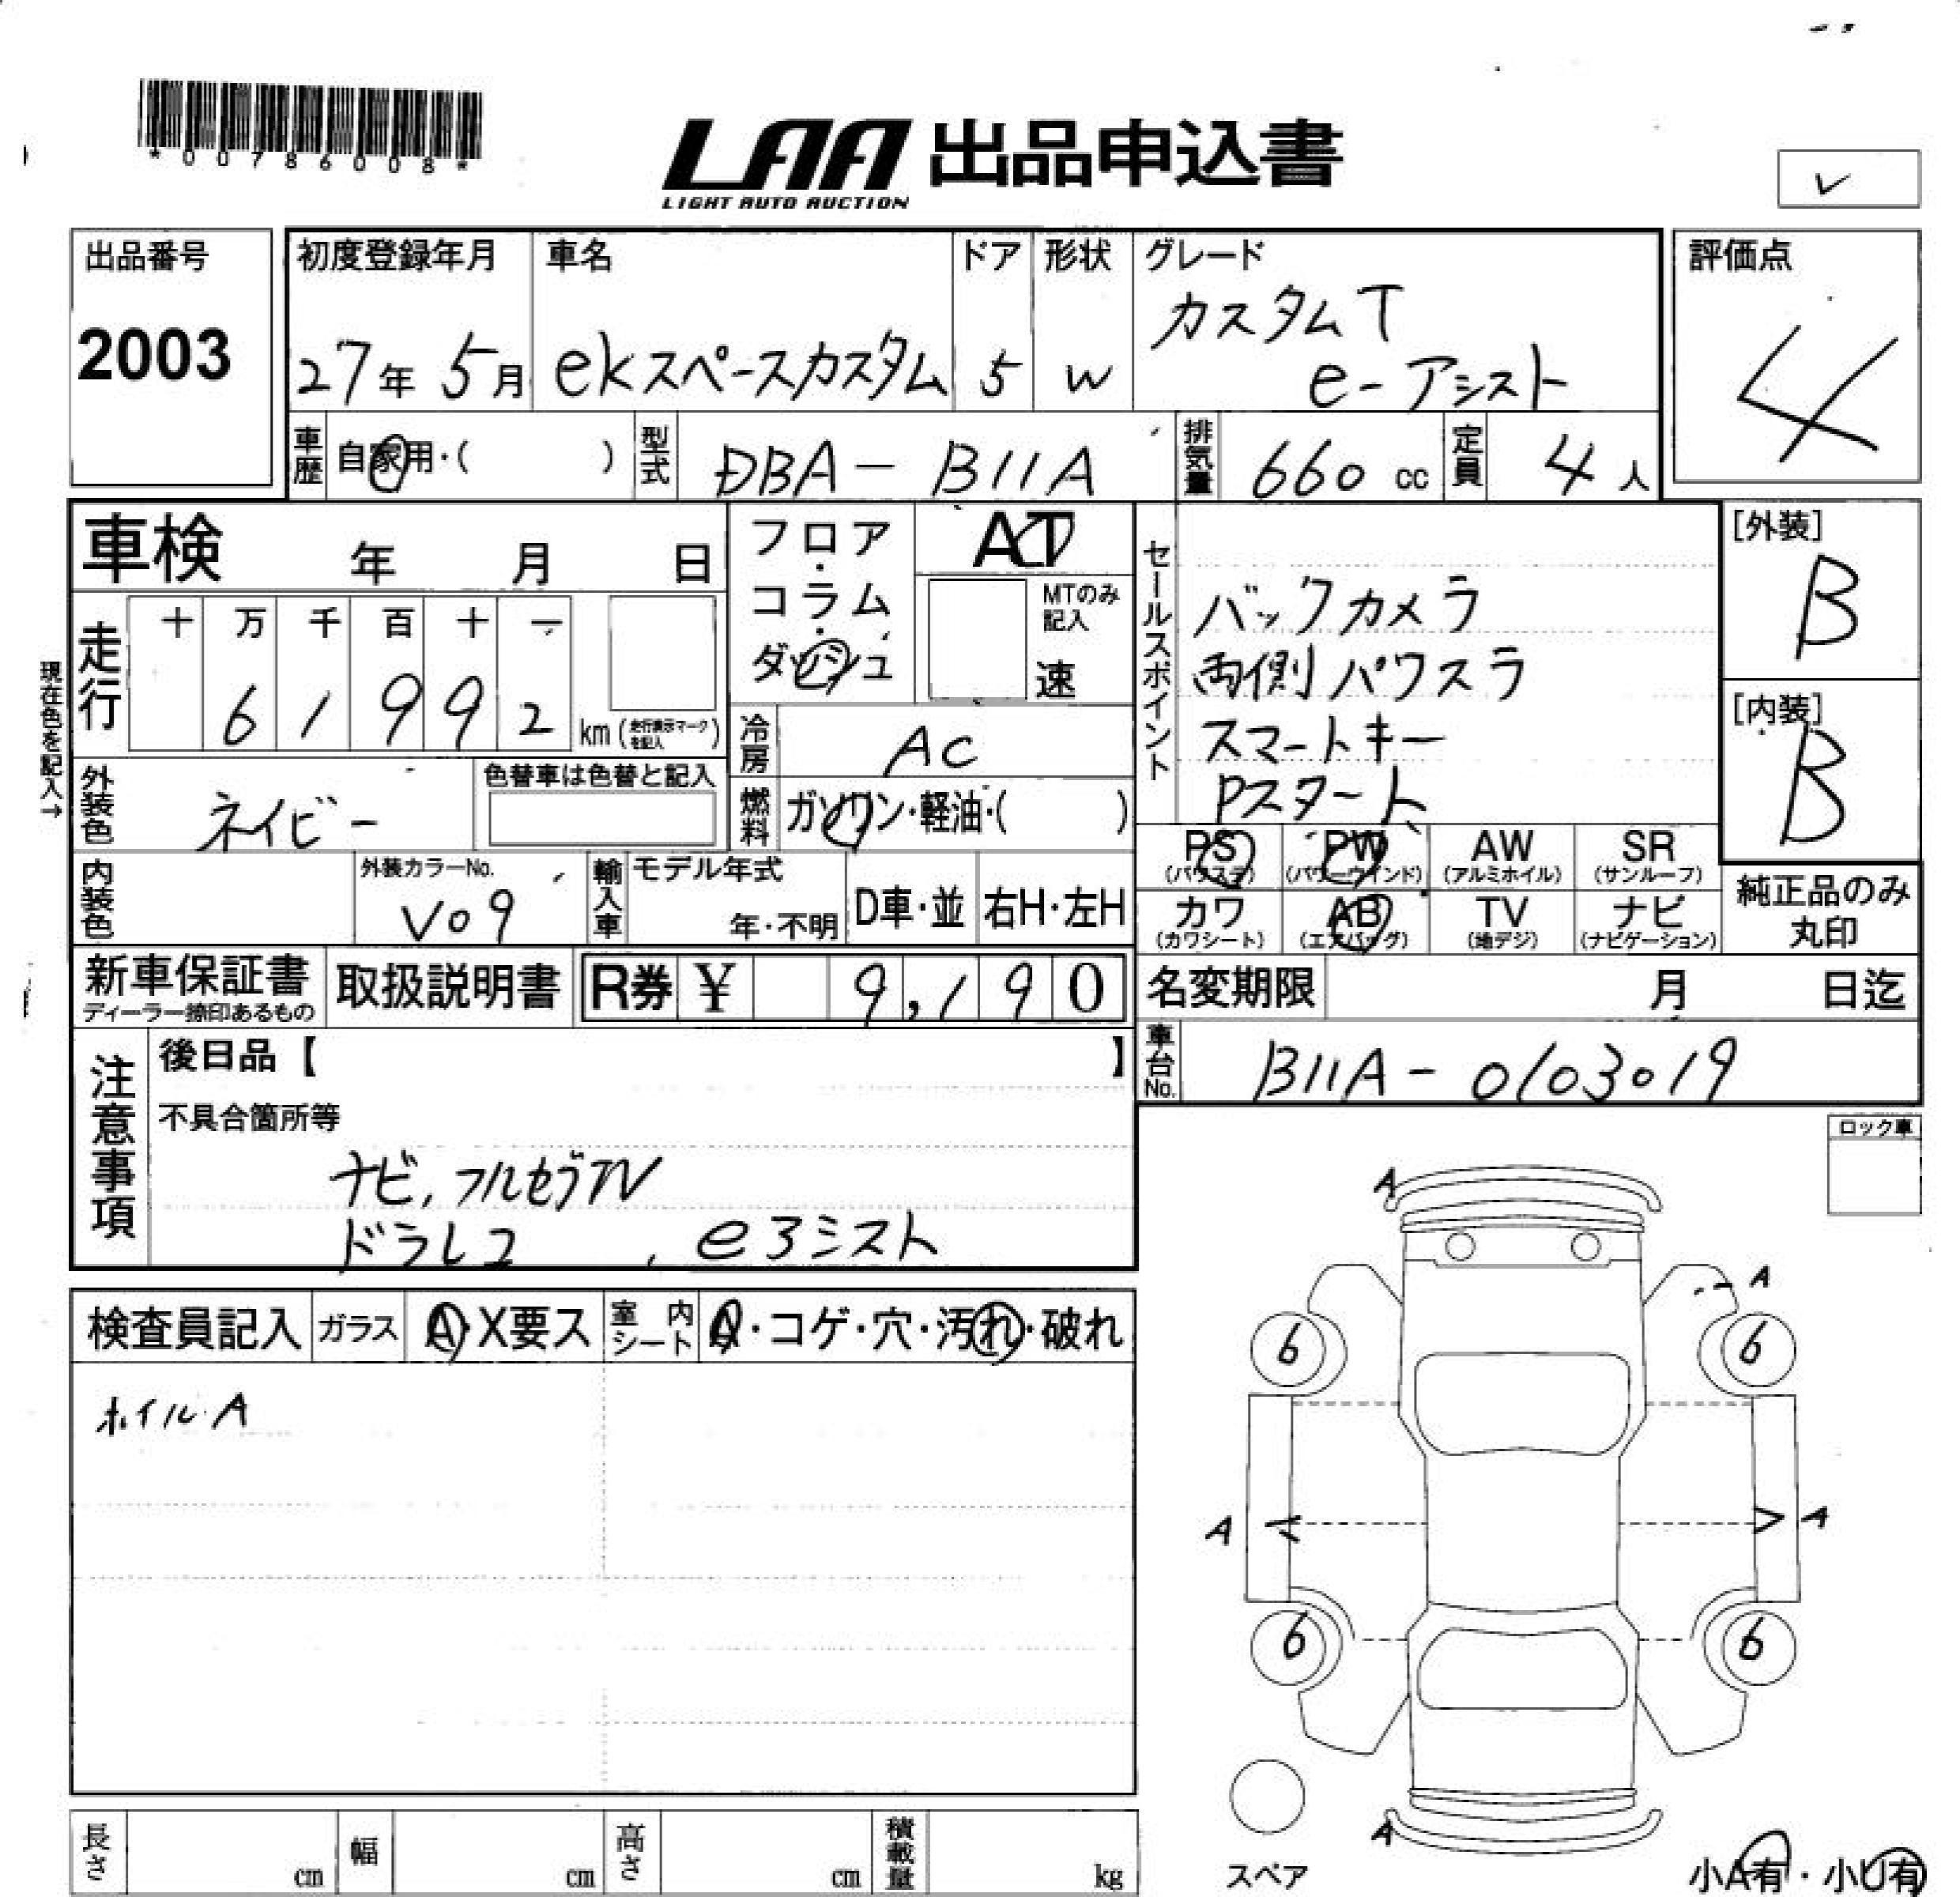 *00786008*
LAA 出品申込書
LIGHT AUTO AUCTION
出品番号
2003
初度登録年月
27年 5月
車名
ekスペースカスタム
ドア
5
形状
W
グレード
カスタムT
e-アシスト
評価点
4
車歴 自家用・( )
型式 DBA- B11A
排気量 660 cc
定員 4 人
車検 年 月 日
フロア・コラム・ダッシュ
AT
MTのみ記入
速
走行
十 万 千 百 十 一
6 1 9 9 2 km (走行表示マークを記入)
現在色を記入→
冷房 AC
外装色 ネイビー
色替車は色替と記入
燃料 ガソリン・軽油・( )
内装色
外装カラーNo.
V09
輸入車
モデル年式
年・不明
D車・並
右H・左H
セールスポイント
バックカメラ
両側パワスラ
スマートキー
Pスタート
[外装]
B
[内装]
B
PS (パワステ)
PW (パワーウインド)
AW (アルミホイル)
SR (サンルーフ)
カワ (カワシート)
AB (エアバッグ)
TV (地デジ)
ナビ (ナビゲーション)
純正品のみ
丸印
新車保証書
ディーラー捺印あるもの
取扱説明書
R券 ¥ 9,190
名変期限 月 日迄
車台No. B11A-0103019
注意事項
後日品【 】
不具合箇所等
ナビ, フルセグTV
ドラレコ
検査員記入
ガラス A・X要ス
室内シート A・コゲ・穴・汚れ・破れ
ホイル A
ロック車
A
A
6 6
A A
6 6
A
スペア
小A有・小U有
長さ cm
幅 cm
高さ cm
積載量 kg